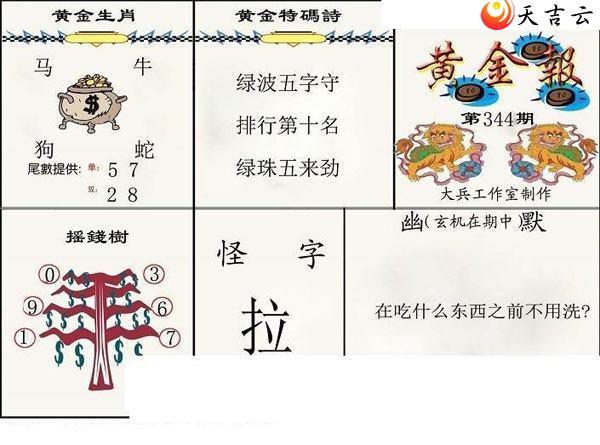 天吉云
黄金生肖
马 牛
狗 蛇
尾數提供: 单: 5 7
双: 2 8
黄金特碼詩
绿波五字守
排行第十名
绿珠五来劲
黄金報
第344期
大兵工作室制作
摇錢樹
0 3
9 6
1 7
怪 字
拉
幽(玄机在期中)默
在吃什么东西之前不用洗?